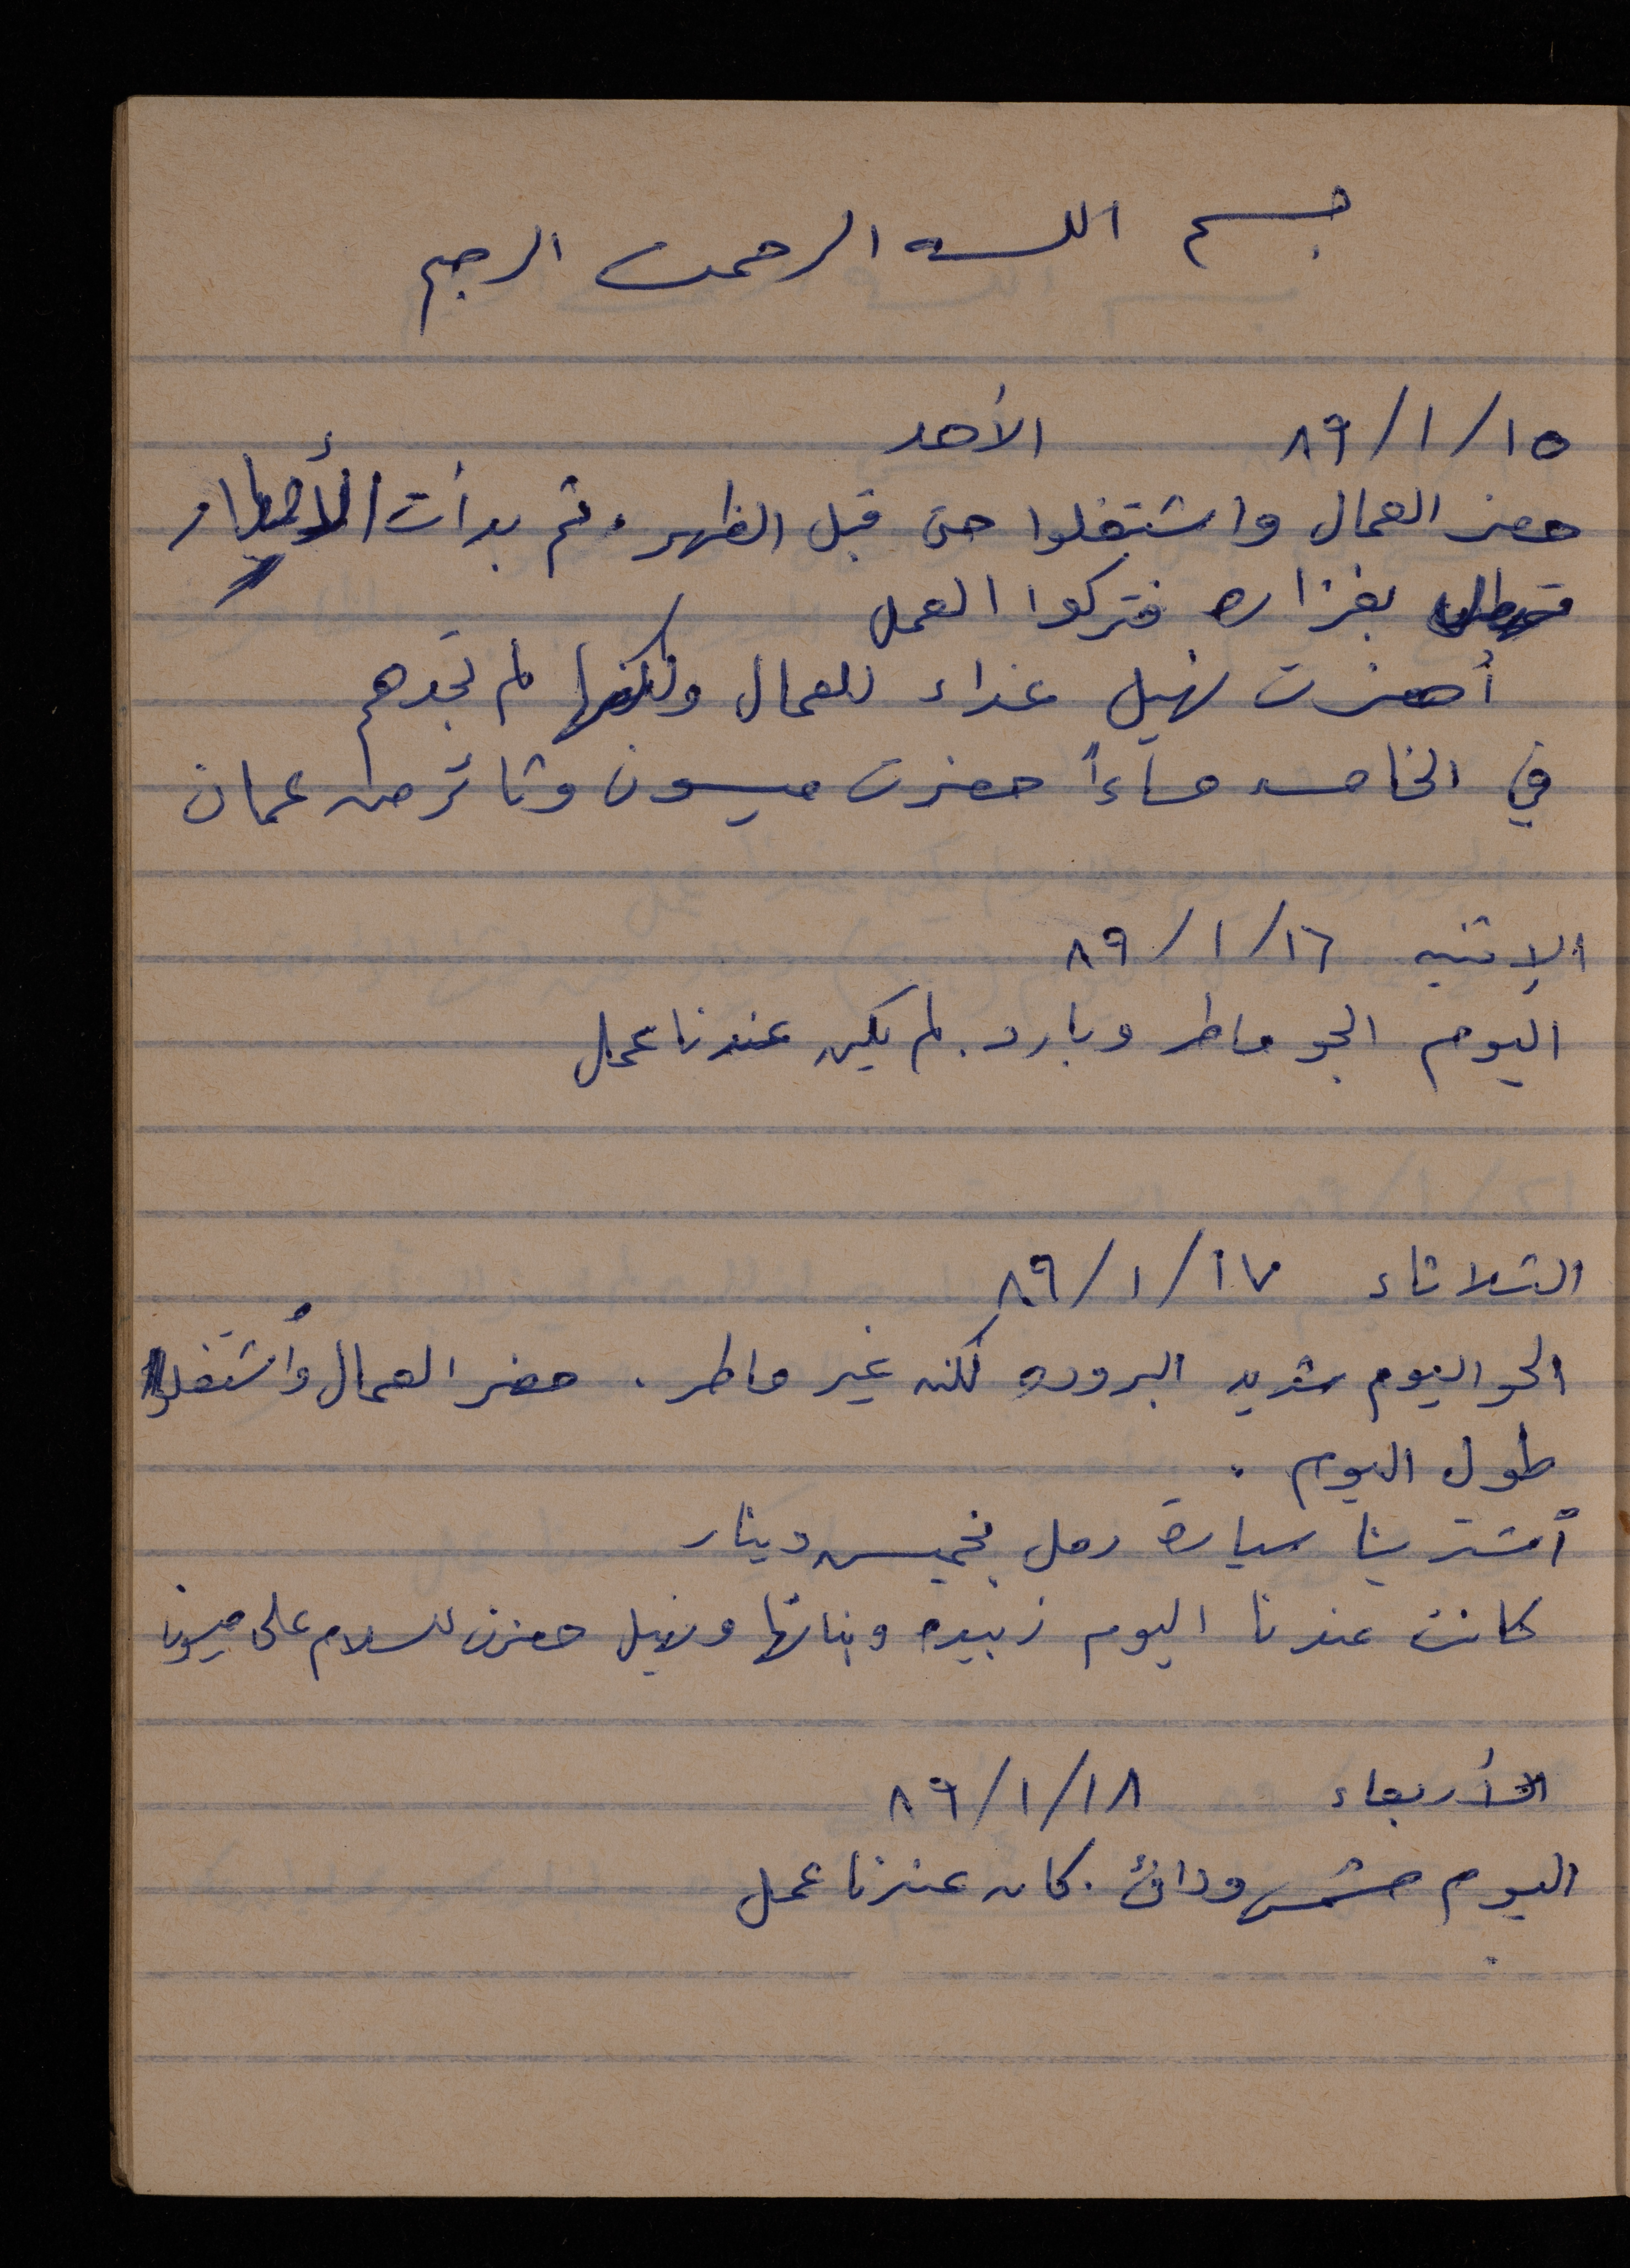 بسم الله الرحمن الرحيم
١٥/١/٨٩ الأحد
حضر العمال واشتغلوا حتى قبل الظهر. ثم بدأت الأمطار
تهطل بغزاره فتركوا العمل
أحضرت نهيل غداء للعمال ولكنها لم تجدهم
في الخامسه مساءاً حضرت ميسون وثائر من عمان
الإثنين ١٦/١/٨٩
اليوم الجو ماطر وبارد. لم يكن عندنا عمل
الثلاثاء ١٧/١/٨٩
الجو اليوم شديد البروده لكنه غير ماطر. حضر العمال واُشتغلوا
طول اليوم.
أشترينا سيارة رمل بخمسين دينار
كانت عندنا اليوم زبيده وبناتها ونهيل حضرن للسلام على ميسون
الأربعاء ١٨/١/٨٩
اليوم مشمس ودافئ. كان عندنا عمل